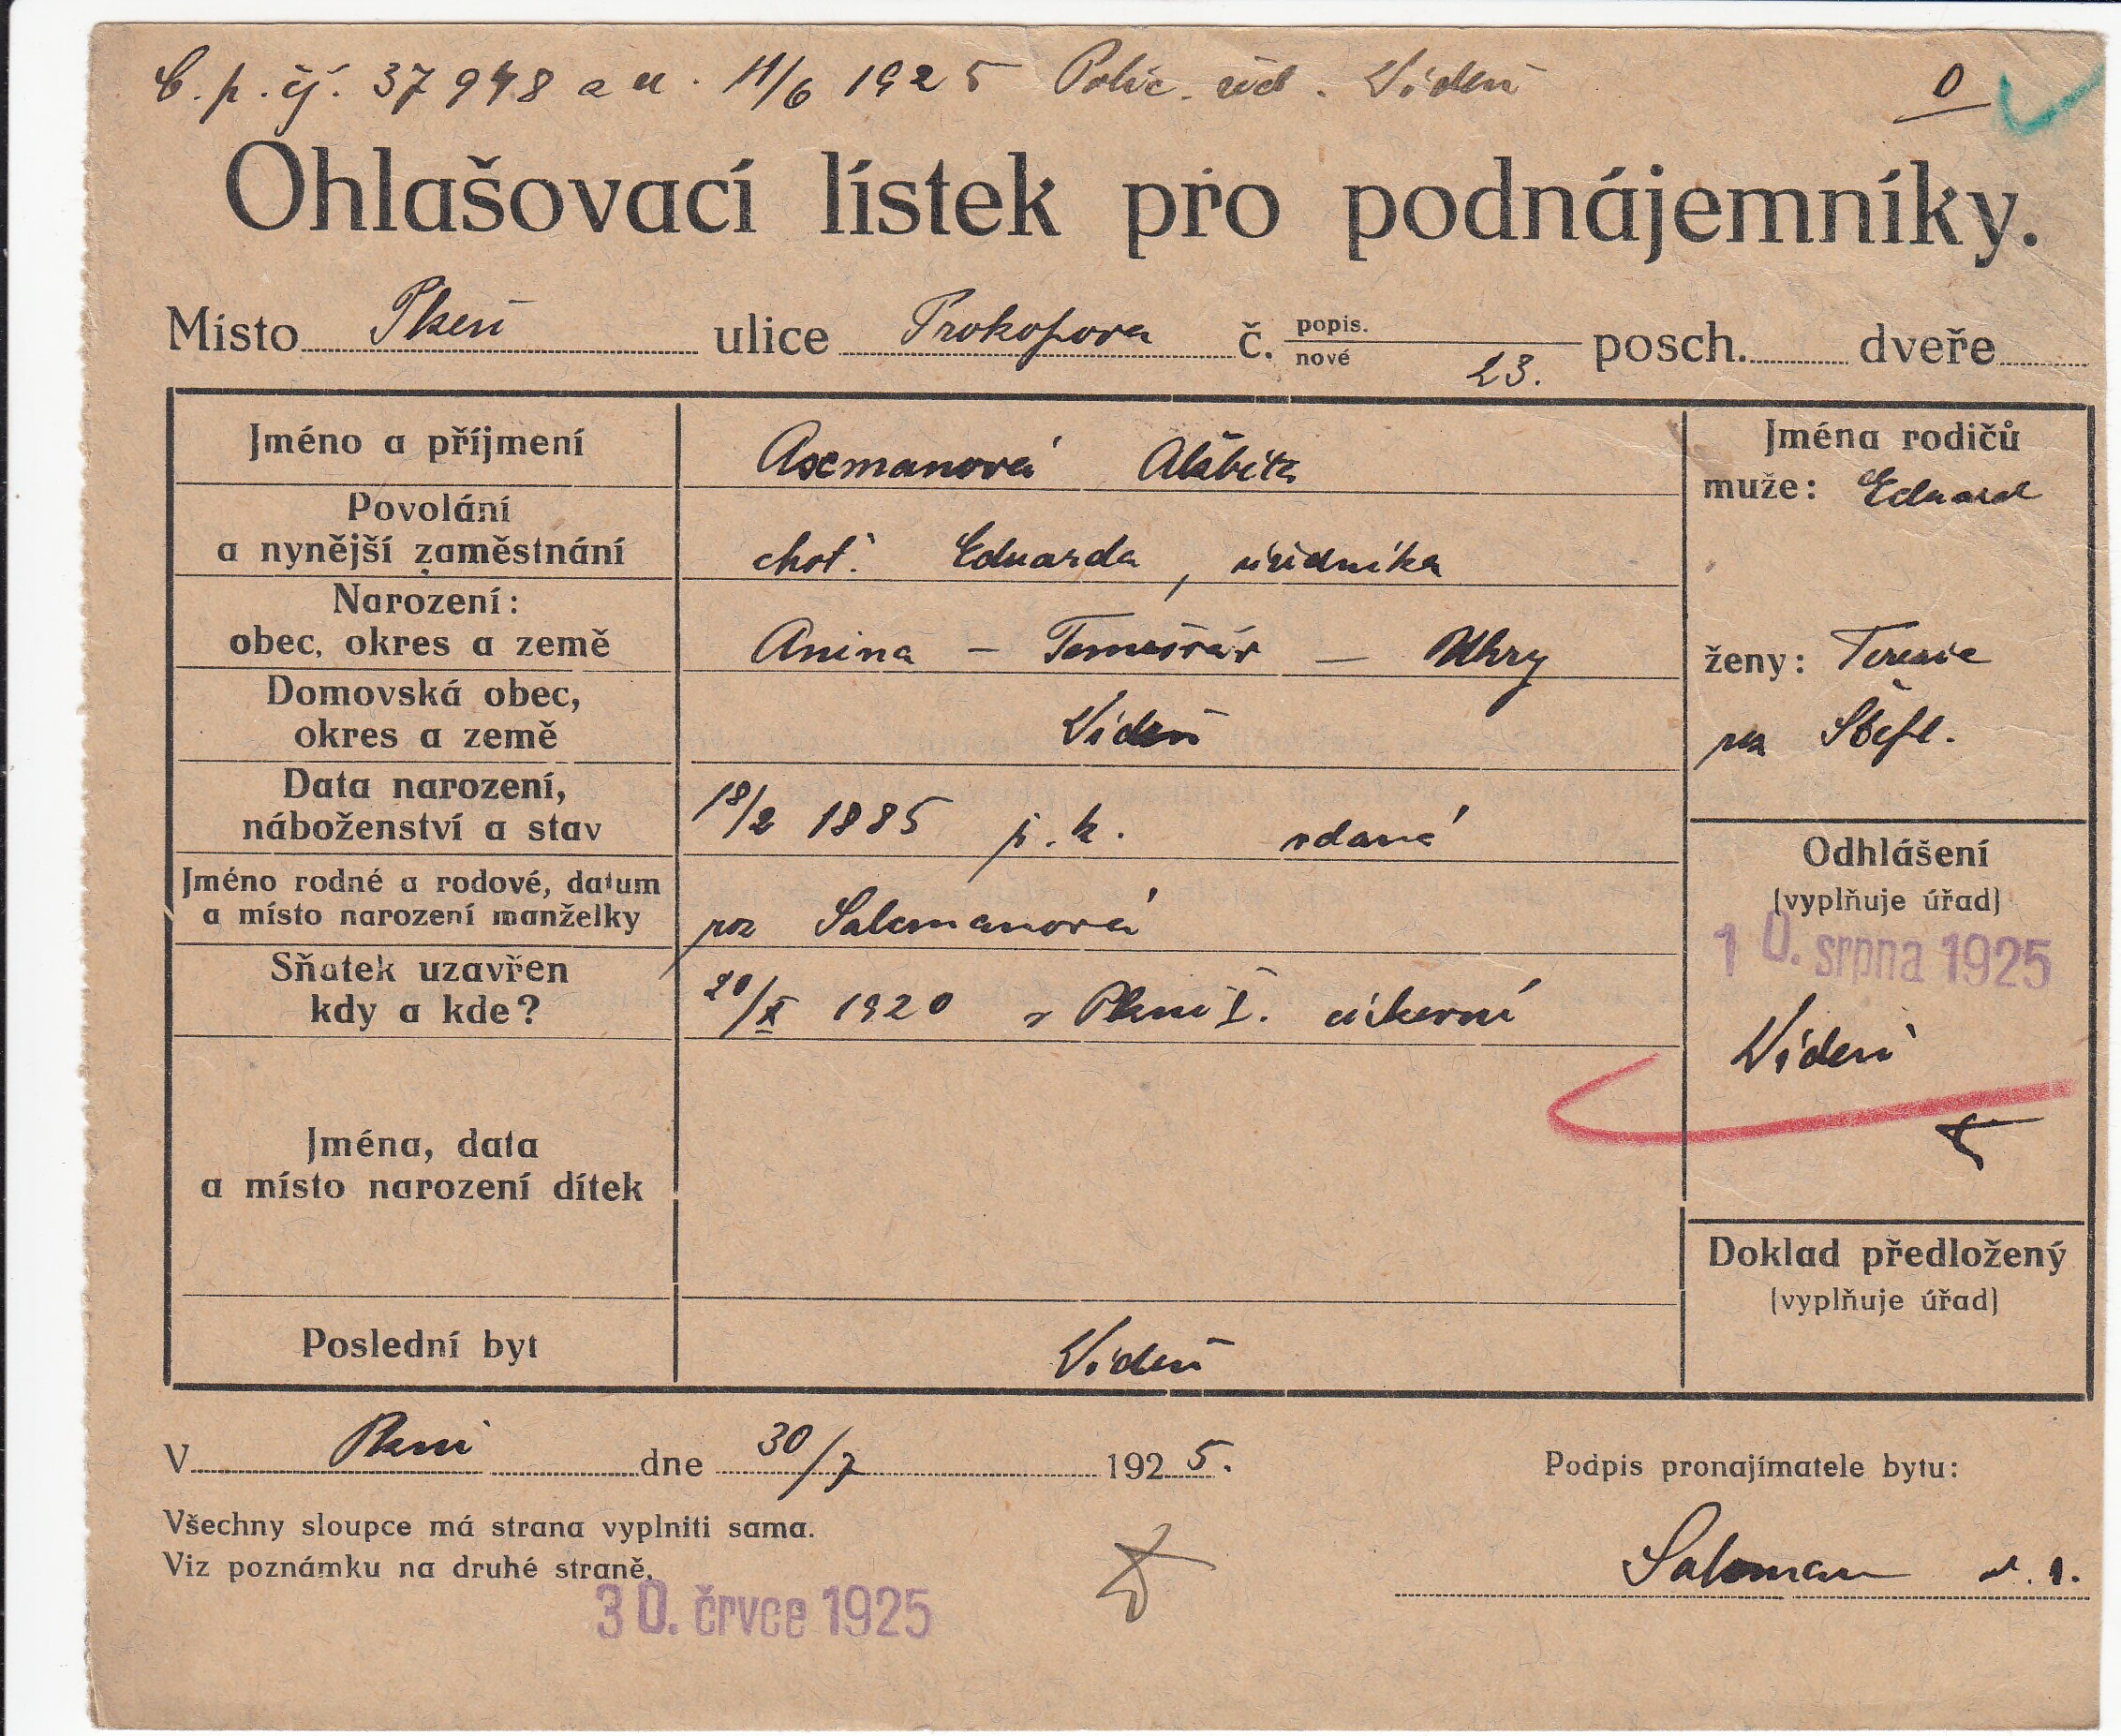 C. p. čj. 37948 a u. 11/6 1925 Polic. řed. Vídeň
0
Ohlašovací lístek pro podnájemníky.
Místo Plzeň ulice Prokopova č. popis. nové 23. posch. dveře
Jméno a příjmení
Axmanová Alžběta
Povolání
a nynější zaměstnání
choť Eduarda, úředníka
Narození:
obec, okres a země
Anina — Temešvár — Uhry
Domovská obec,
okres a země
Vídeň
Data narození,
náboženství a stav
18/2 1885 ř. k. vdaná
Jméno rodné a rodové, datum
a místo narození manželky
roz Salamanová
Sňatek uzavřen
kdy a kde?
20/X 1920 v Plzni I. církevní
Jména, data
a místo narození dítek
Poslední byt
Vídeň
Jména rodičů
muže: Eduard
ženy: Terezie
roz Štefl.
Odhlášení
(vyplňuje úřad)
10. srpna 1925
Vídeň
Doklad předložený
(vyplňuje úřad)
V Plzni dne 30/7 1925.
Podpis pronajímatele bytu:
Všechny sloupce má strana vyplniti sama.
Viz poznámku na druhé straně.
Salaman v. r.
30. črvce 1925